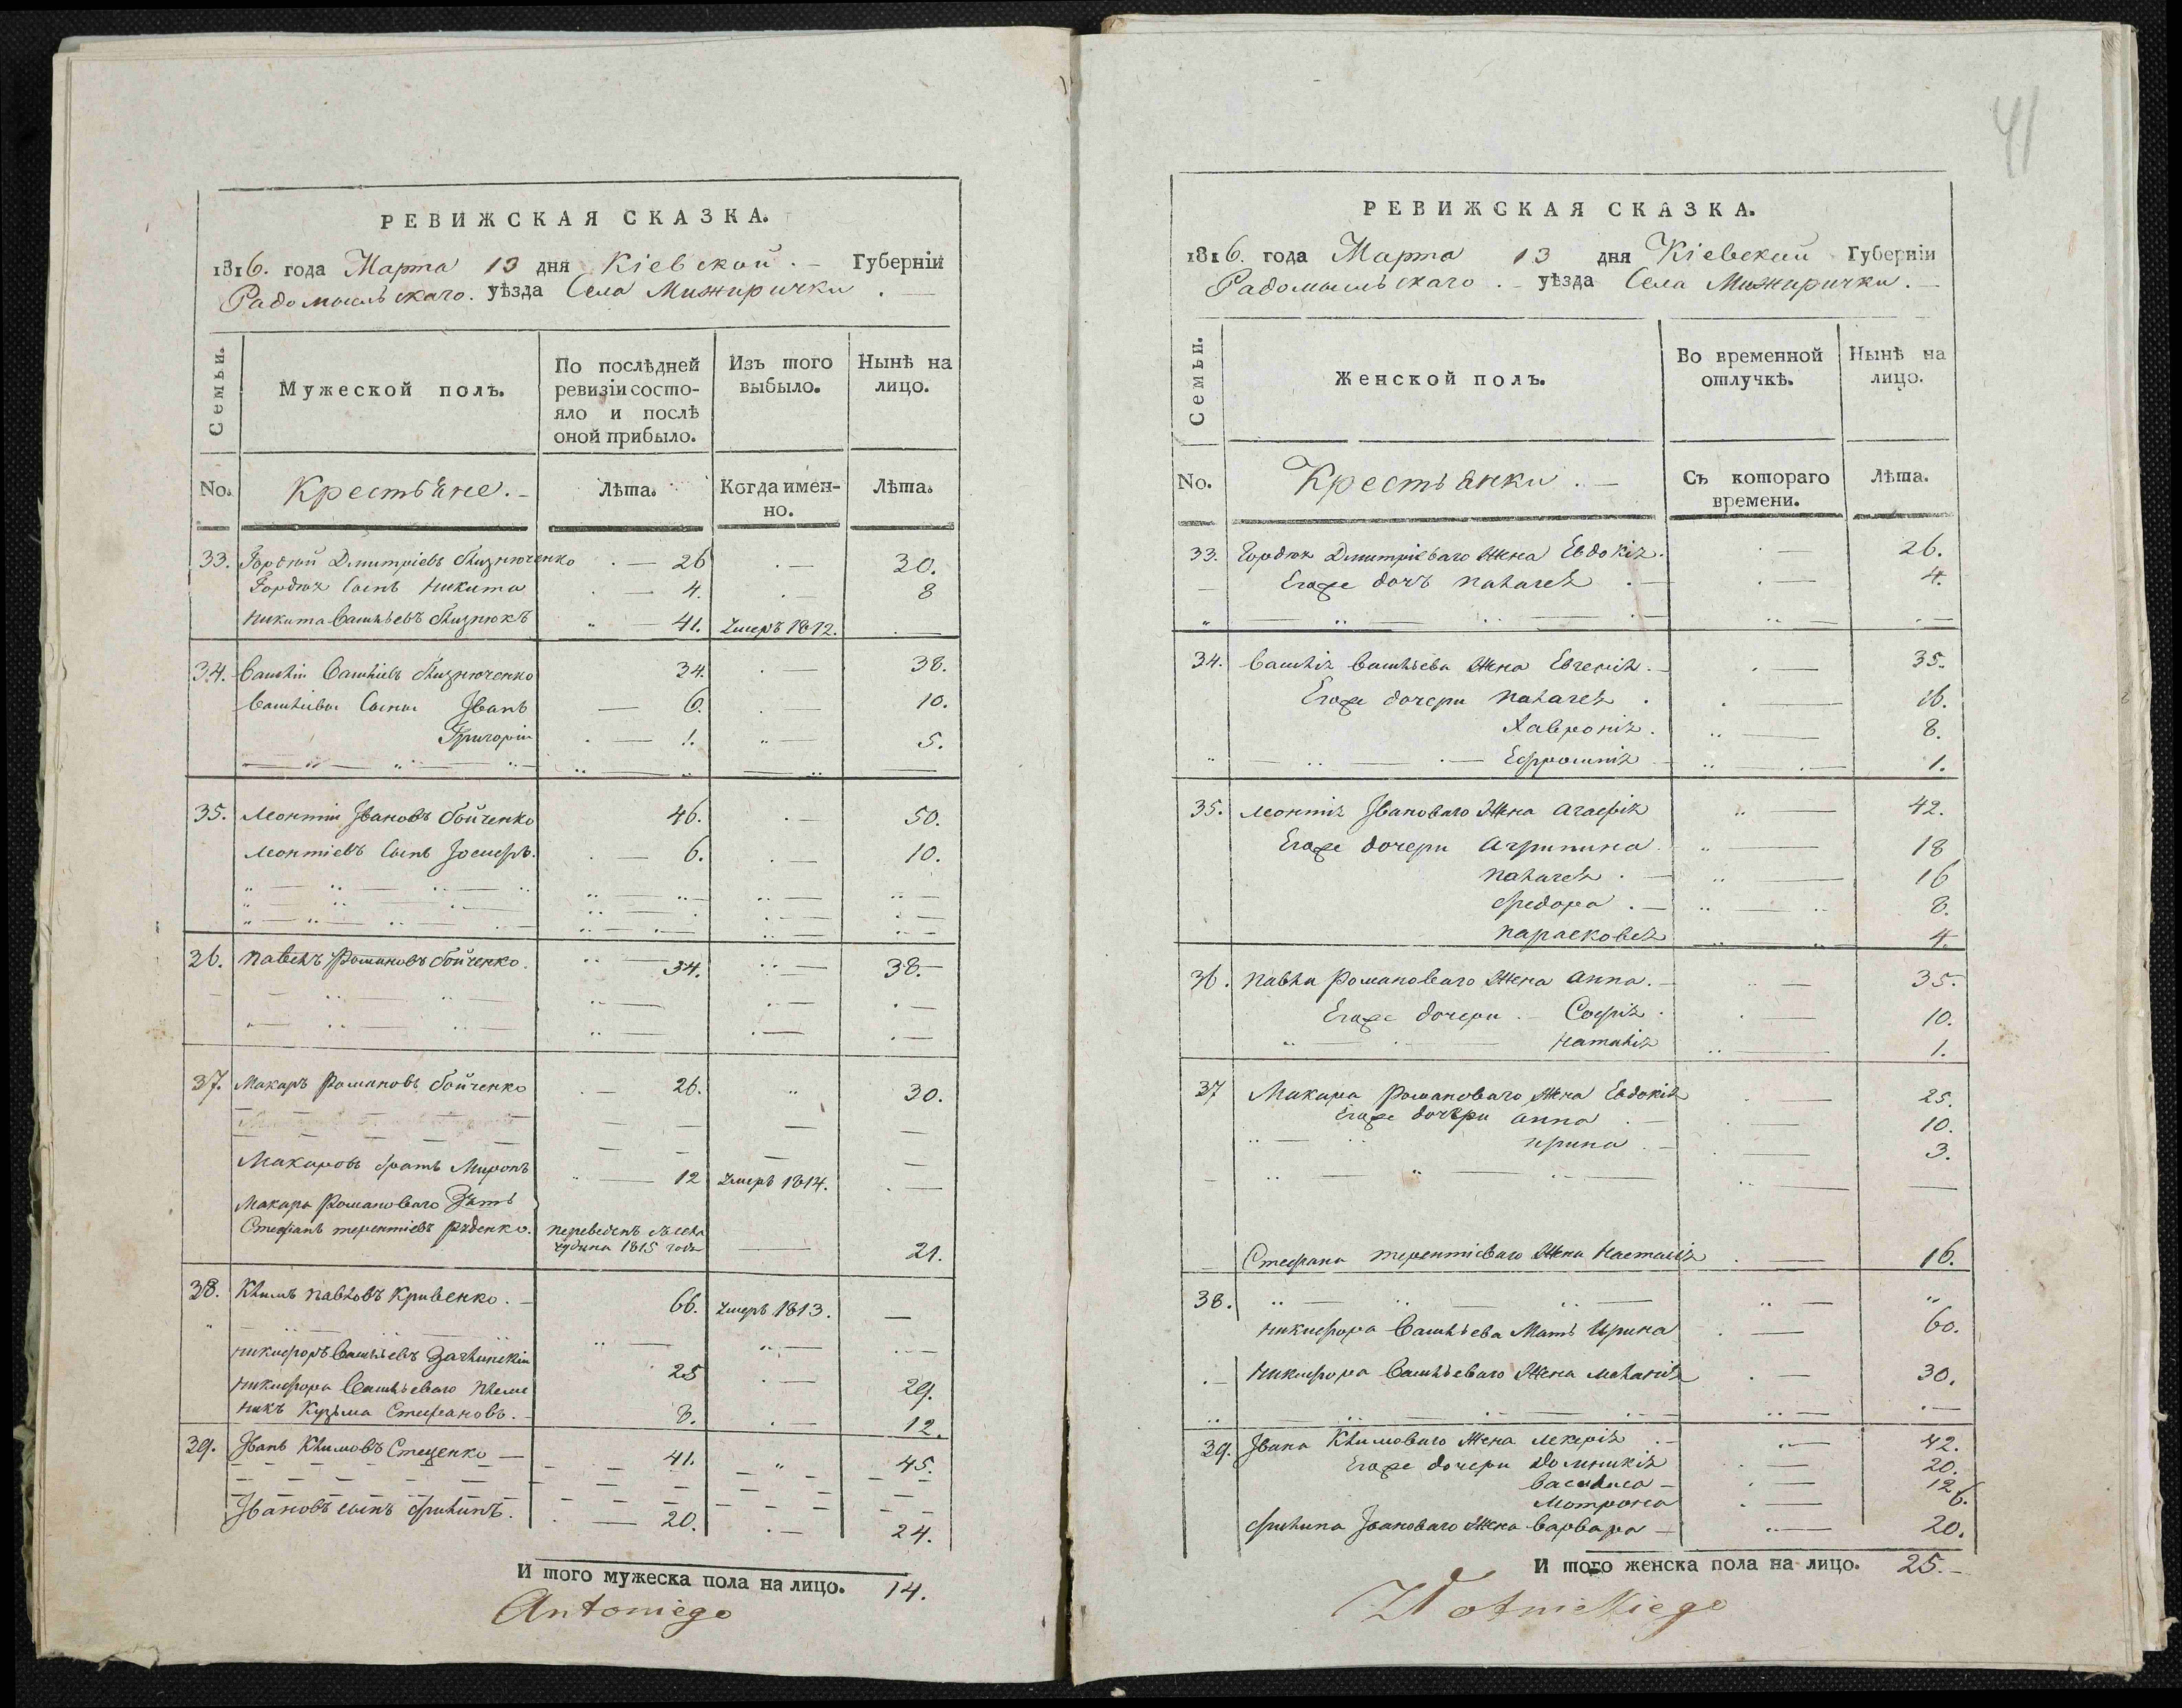 РЕВИЖСКАЯ СКАЗКА.
1816. года Марта 13 дня Кіевской. Губерніи
Радомысльскаго. уѣзда Села Мижирички.
Семьи.
Мужеской полъ.
По послѣдней
ревизіи состо-
яло и послѣ
оной прибыло.
Изъ того
выбыло.
Нынѣ на
лицо.
No.
Крестьяне.
Лѣта.
Когда имен-
но.
Лѣта.
33. Гордѣй Дмитріевъ 26 30.
Сынъ Никита 4. 8
Никита 41. умеръ 1812.
34. 34. 38.
Сыны Іванъ 6. 10.
Григорій 1. 5.
35. Леонтій Івановъ Бойченко 46. 50.
Леонтіевъ Сынъ 6. 10.
36. Павелъ Романовъ Бойченко. 34. 38.
37. Макаръ Романовъ Бойченко 26. 30.
Макаровъ братъ Миронъ 12 умеръ 1814.
Макара Романоваго Зять
Стефанъ терентіевъ переведенъ
1815 года 21.
38. Климъ Павловъ Кривенко. 66. умеръ 1813.
Никифоръ 25 29.
Никифора племе
никъ Кузьма Стефановъ. 8. 12.
39. Іванъ Климовъ Стеценко 41. 45.
Івановъ сынъ Филипъ. 20. 24.
И того мужеска пола на лицо. 14.
Antoniego
41
РЕВИЖСКАЯ СКАЗКА.
1816. года Марта 13 дня Кіевской Губерніи
Радомысльскаго. уѣзда Села Мижирички.
Семьи.
Женской полъ.
Во временной
отлучкѣ.
Нынѣ на
лицо.
No.
Крестьянки.
Съ котораго
времени.
Лѣта.
33. Дмитріеваго Жена Евдокія. 26.
Егоже дочь Палагея 4.
34. Жена Евгенія. 35.
Егоже дочери Палагея 16.
Хавронія. 8.
Ефросинія 1.
35. Леонтія Івановаго Жена Агафія 42.
Егоже дочери Агрипина 18
Палагея 16
Федора 8.
Парасковея 4.
36. Павла Романоваго Жена Анна. 35.
Егоже дочери Софія 10.
Наталія 1.
37 Макара Романоваго Жена Евдокія 25.
Егоже дочѣри Анна 10.
Ирина 3.
Стефана терентіеваго Жена Насталія 16.
38.
Никифора Мать Ирина 60.
Никифора Жена Меланія 30.
39. Івана Климоваго Жена 42.
Егоже дочери Домникія 20.
Василиса 12
Мотрона 6.
Филипа Івановаго Жена Варвара 20.
И того женска пола на лицо. 25.